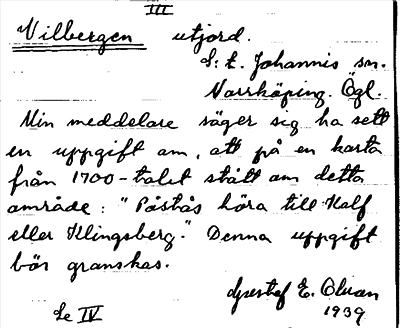 III
Vilbergen utjord.
S:t. Johannis sn.
Norrköping. Ögl.
Min meddelare säger sig ha sett
en uppgift om, att på en karta
från 1700-talet stått om detta
område: "Påstås höra till Kalf
eller Klingsberg." Denna uppgift
bör granskas.
Gustaf E. Olson
1939
Se IV